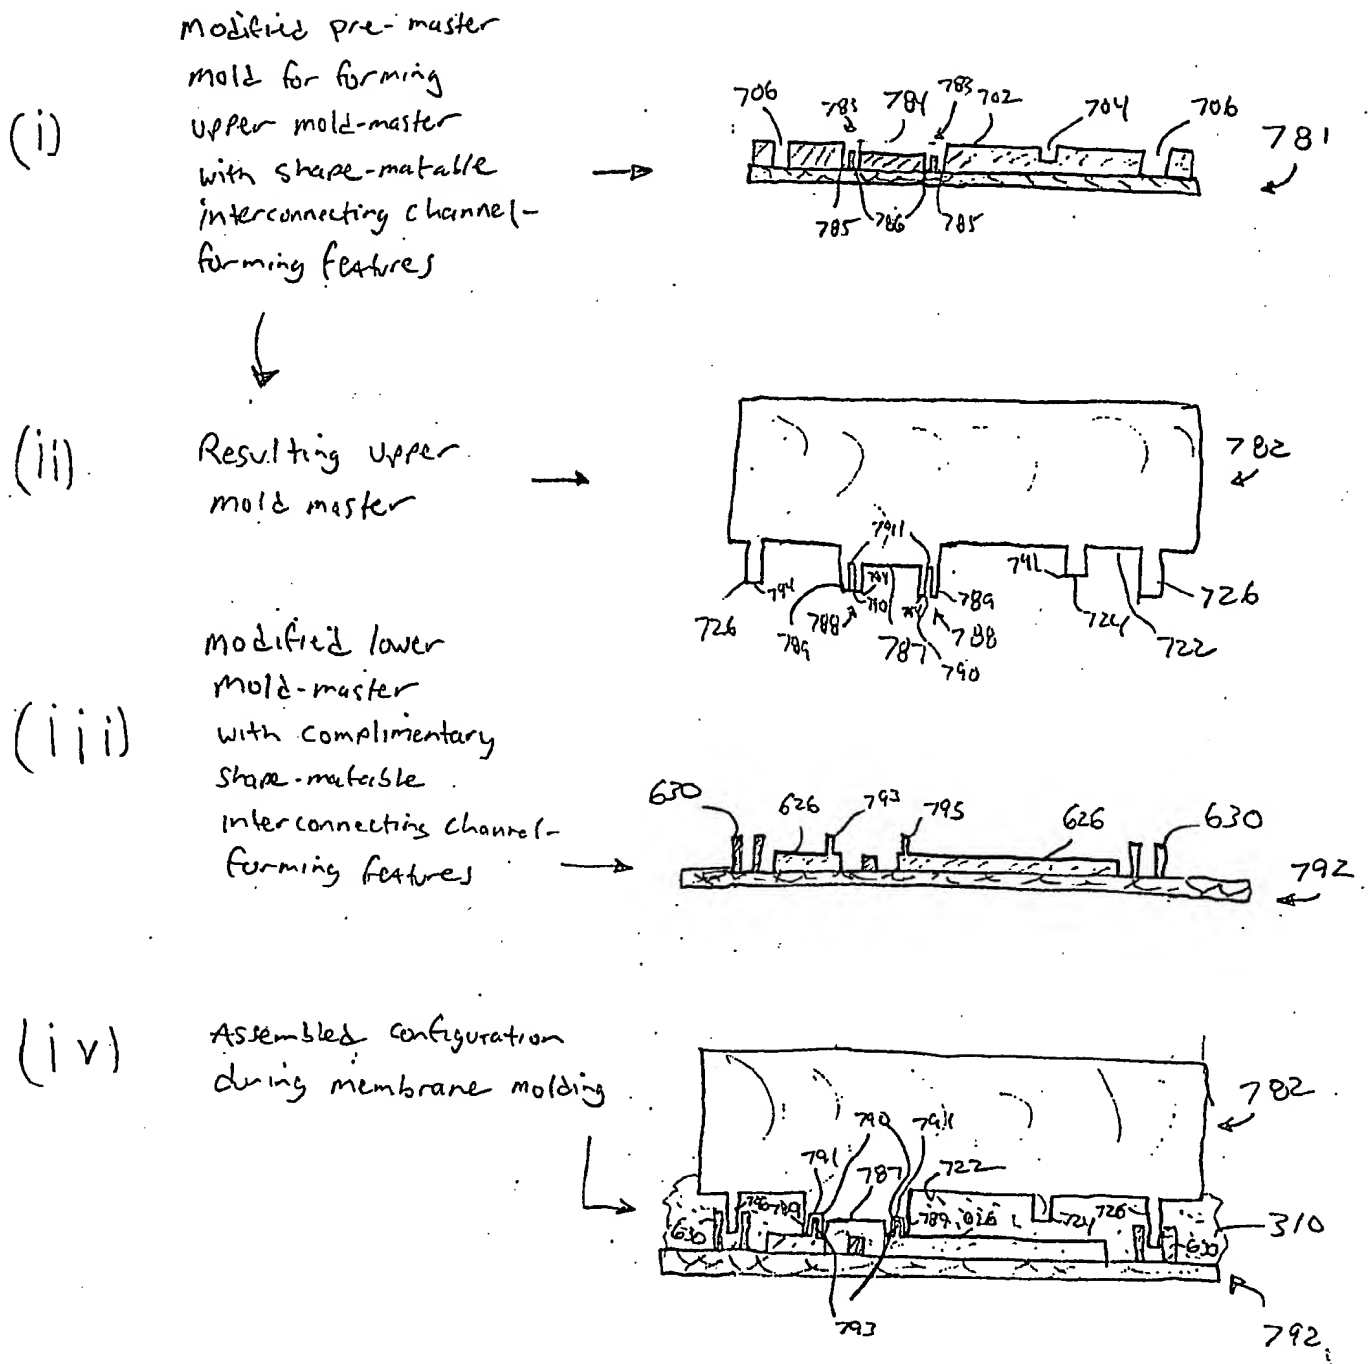 (i)
Modified pre-master
mold for forming
upper mold-master
with shape-matable
interconnecting channel-
forming features
706
783
784
783
702
704
706
781
785
786
785
(ii)
Resulting upper
mold master
782
791
794
726
794
789
788
790
787
790
788
789
791
724
722
726
(iii)
Modified lower
mold-master
with complimentary
shape-matable
interconnecting channel-
forming features
630
626
793
795
626
630
792
(iv)
Assembled configuration
during membrane molding
782
791
790
787
791
722
789
789
626
724
726
630
630
310
793
792